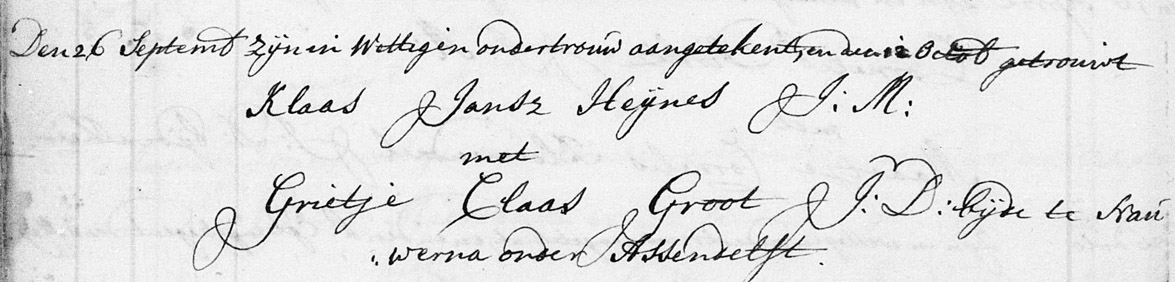 Den 26 Septemb zijn in Wettigen ondertrouw aangetekent, en den 12 Octob getrouwt
Klaas Jansz Heijnes J: M:
met
Grietje Claas Groot J: D: beijde te Nau
:werna onder Assendelft.